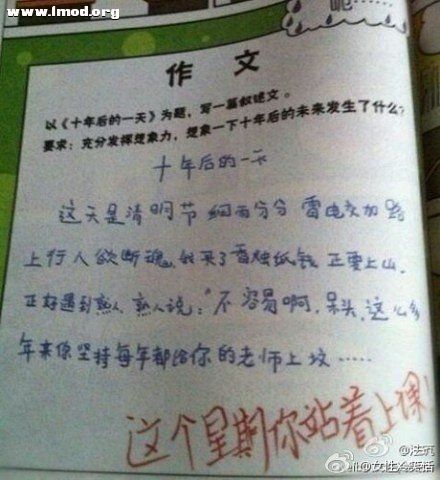 www.lmod.org
呃……
作 文
以《十年后的一天》为题，写一篇叙述文。
要求：充分发挥想象力，想象一下十年后的未来发生了什么？
十年后的一天
这天是清明节 细雨分分 雷电交加 路
上行人欲断魂，我买了香烛纸钱 正要上山，
正好遇到熟人，熟人说：“不容易啊，呆头，这么多
年来你坚持每年都给你的老师上坟……
这个星期你站着上课！
@法克
@女性~笑话